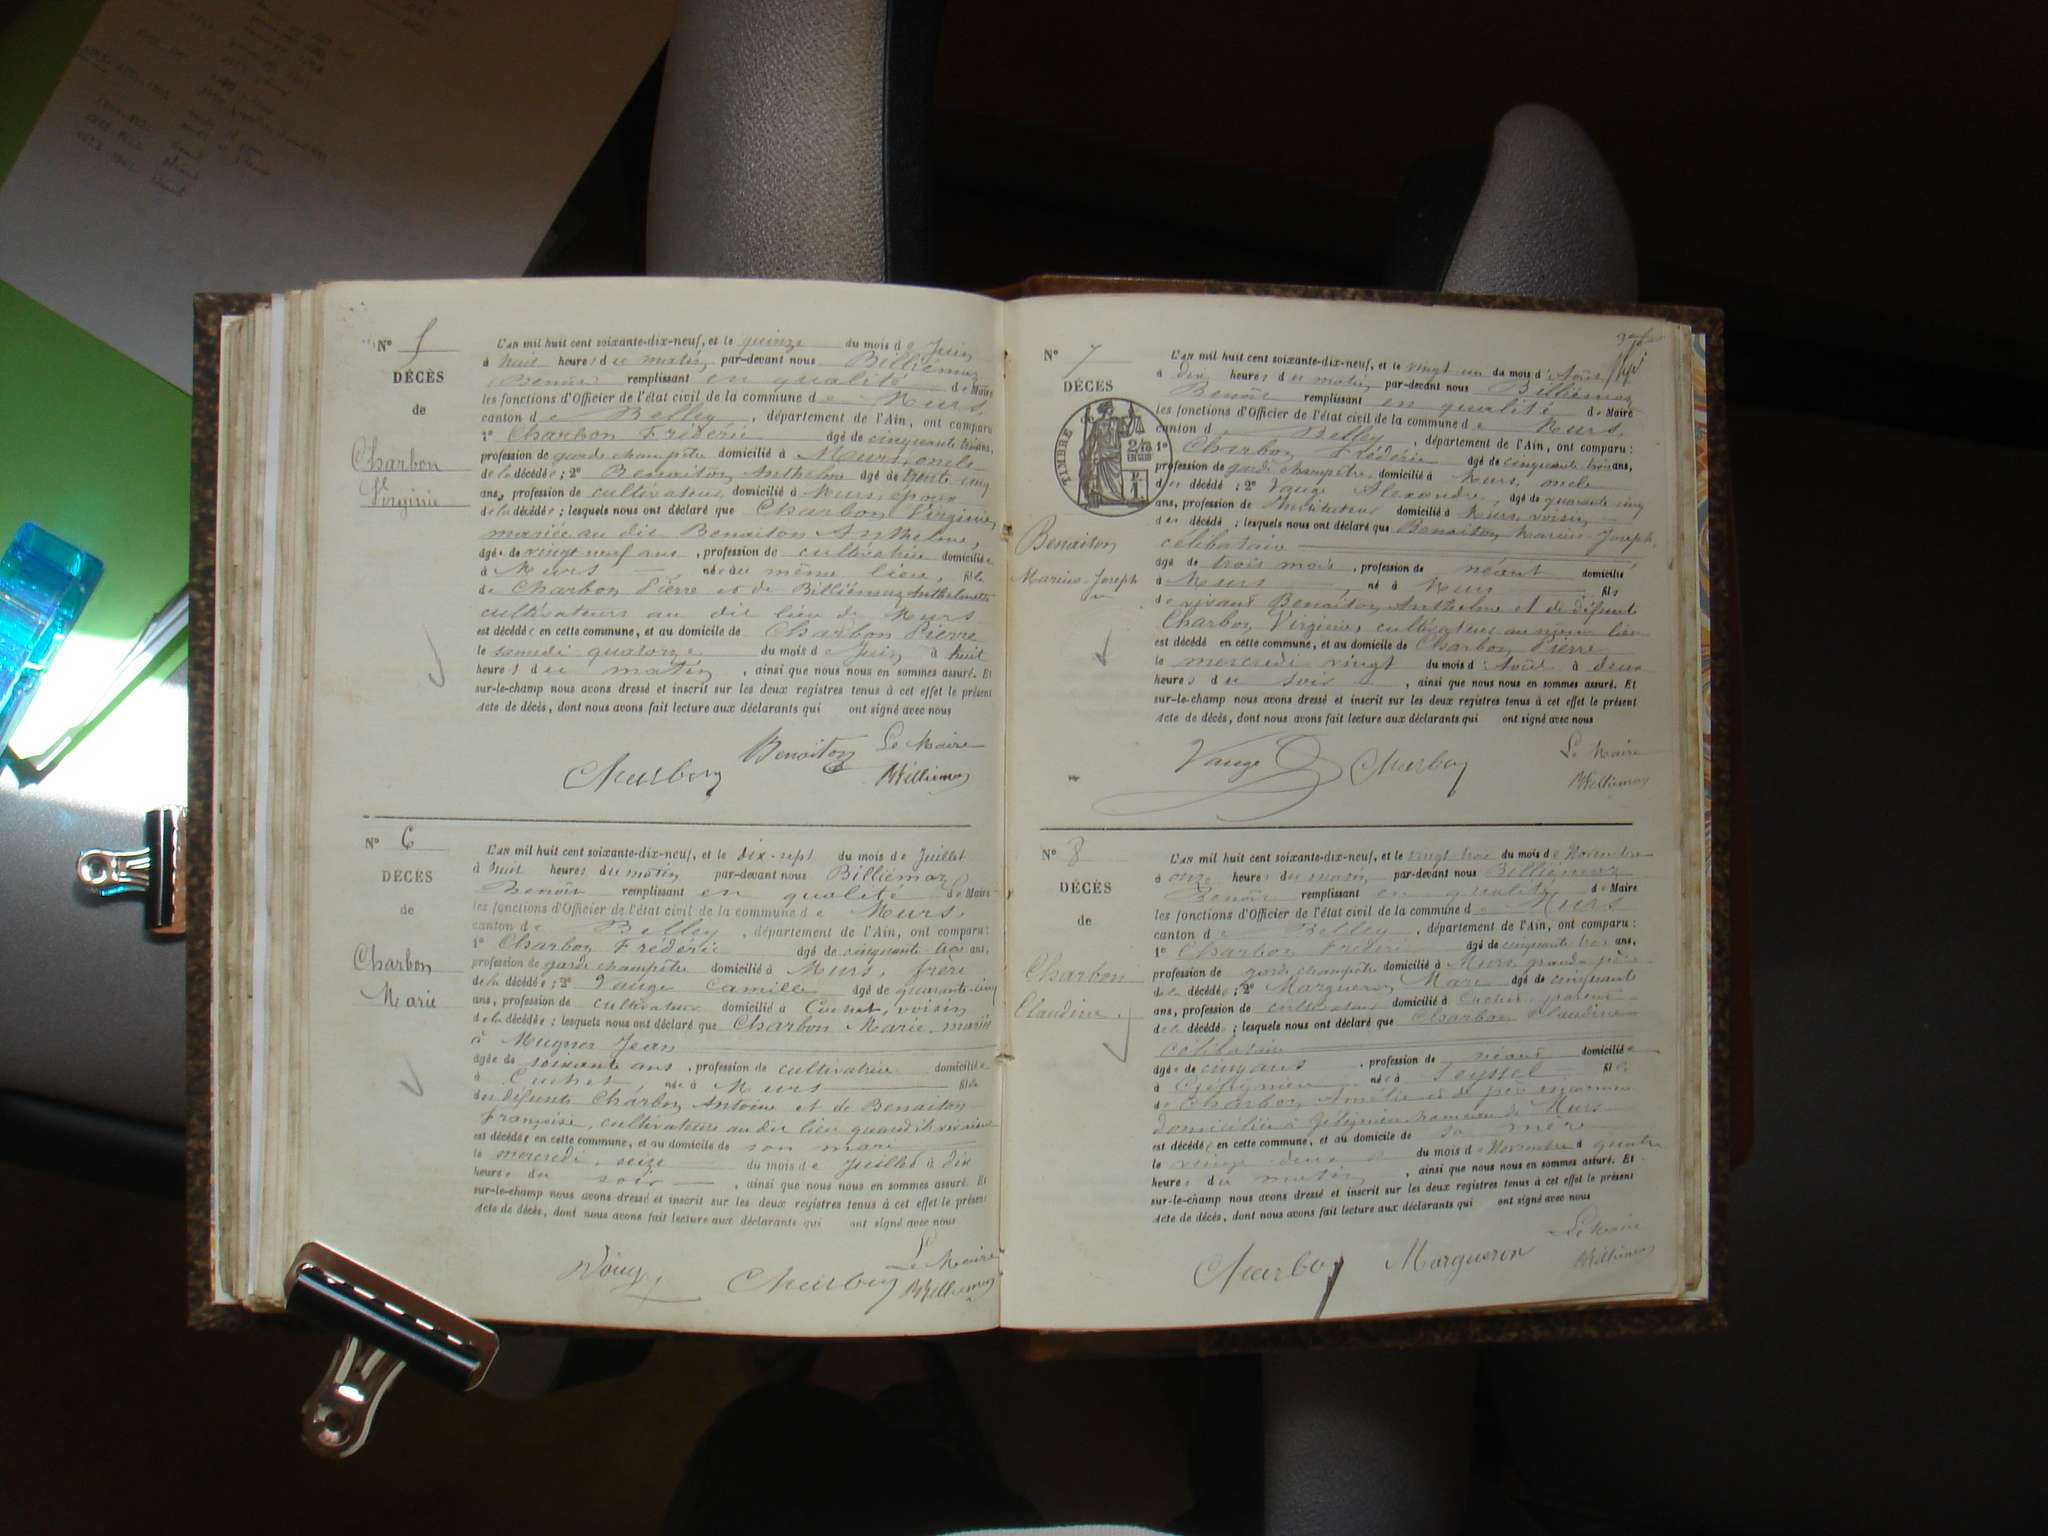 N° 5
DÉCÈS
de
Charbon
Virginie
L'an mil huit cent soixante-dix-neuf, et le quinze du mois de Juin
à huit heures du matin par-devant nous Billiémaz
Benoît remplissant en qualité de Maire
les fonctions d'Officier de l'état civil de la commune de Murs,
canton de Belley, département de l'Ain, ont comparu
1° Charbon Frédéric âgé de cinquante trois ans,
profession de garde champêtre domicilié à Murs, oncle
de la décédée ; 2° Benaiton Anthelme âgé de trente cinq
ans, profession de cultivateur, domicilié à Murs, époux
de la décédée ; lesquels nous ont déclaré que Charbon Virginie,
mariée au dit Benaiton Anthelme,
âgée de vingt neuf ans, profession de cultivatrice domiciliée
à Murs, née au même lieu, fille
de Charbon Pierre et de Billiémaz Anthelmette
cultivateurs au dit lieu de Murs
est décédée en cette commune, et au domicile de Charbon Pierre
le samedi quatorze du mois de Juin à huit
heures du matin, ainsi que nous nous en sommes assuré. Et
sur-le-champ nous avons dressé et inscrit sur les deux registres tenus à cet effet le présent
acte de décès, dont nous avons fait lecture aux déclarants qui ont signé avec nous
Benaiton Le Maire
Charbon Billiemaz
N° 6
DÉCÈS
de
Charbon
Marie
L'an mil huit cent soixante-dix-neuf, et le dix-sept du mois de Juillet
à huit heures du matin par-devant nous Billiémaz
Benoît remplissant en qualité de Maire
les fonctions d'Officier de l'état civil de la commune de Murs,
canton de Belley, département de l'Ain, ont comparu :
1° Charbon Frédéric âgé de cinquante trois ans,
profession de garde champêtre domicilié à Murs, frère
de la décédée ; 2° Vauge Camille âgé de quarante-cinq
ans, profession de cultivateur domicilié à Cuchet, voisin
de la décédée ; lesquels nous ont déclaré que Charbon Marie, mariée
à Mugner Jean
âgée de soixante ans, profession de cultivatrice domiciliée
à Cuchet, née à Murs fille
des défunts Charbon Antoine et de Benaiton
Françoise, cultivateurs au dit lieu quand ils vivaient
est décédée en cette commune, et au domicile de son mari
le mercredi, seize du mois de Juillet à dix
heures du soir, ainsi que nous nous en sommes assuré. Et
sur-le-champ nous avons dressé et inscrit sur les deux registres tenus à cet effet le présent
acte de décès, dont nous avons fait lecture aux déclarants qui ont signé avec nous
Le Maire
Charbon Billiemaz
N° 7
DÉCÈS
TIMBRE
Benaiton
Marius-Joseph
L'an mil huit cent soixante-dix-neuf, et le vingt un du mois d'Août
à dix heures du matin par-devant nous Billiémaz
Benoît remplissant en qualité de Maire
les fonctions d'Officier de l'état civil de la commune de Murs,
canton de Belley, département de l'Ain, ont comparu :
1° Charbon Frédéric âgé de cinquante trois ans,
profession de garde champêtre, domicilié à Murs, oncle
du décédé ; 2° Vauge Alexandre, âgé de quarante cinq
ans, profession de Instituteur domicilié à Murs, voisin
du décédé ; lesquels nous ont déclaré que Benaiton Marius-Joseph,
célibataire
âgé de trois mois, profession de néant domicilié
à Murs, né à Murs fils
de vivant Benaiton Anthelme et de défunte
Charbon Virginie, cultivateurs au même lieu
est décédé en cette commune, et au domicile de Charbon Pierre
le mercredi vingt du mois d'Août à deux
heures du soir, ainsi que nous nous en sommes assuré. Et
sur-le-champ nous avons dressé et inscrit sur les deux registres tenus à cet effet le présent
acte de décès, dont nous avons fait lecture aux déclarants qui ont signé avec nous
Vauge Charbon Le Maire
Billiemaz
N° 8
DÉCÈS
de
Charbon
Claudine
L'an mil huit cent soixante-dix-neuf, et le vingt trois du mois de Novembre
à onze heures du matin par-devant nous Billiémaz
Benoît remplissant en qualité de Maire
les fonctions d'Officier de l'état civil de la commune de Murs
canton de Belley, département de l'Ain, ont comparu :
1° Charbon Frédéric âgé de cinquante trois ans,
profession de garde champêtre domicilié à Murs, grand-père
de la décédée ; 2° Margueron Marc âgé de cinquante
ans, profession de cultivateur domicilié à Cuchet, parent
de la décédée ; lesquels nous ont déclaré que Charbon Claudine
célibataire
âgée de cinq ans, profession de néant domiciliée
à née à Seyssel, fille
de Charbon Amélie et de père inconnu
domiciliée à hameau de Murs
est décédée en cette commune, et au domicile de sa mère
le vingt deux du mois de Novembre à quatre
heures du matin, ainsi que nous nous en sommes assuré. Et
sur-le-champ nous avons dressé et inscrit sur les deux registres tenus à cet effet le présent
acte de décès, dont nous avons fait lecture aux déclarants qui ont signé avec nous
Le Maire
Charbon Margueron Billiemaz